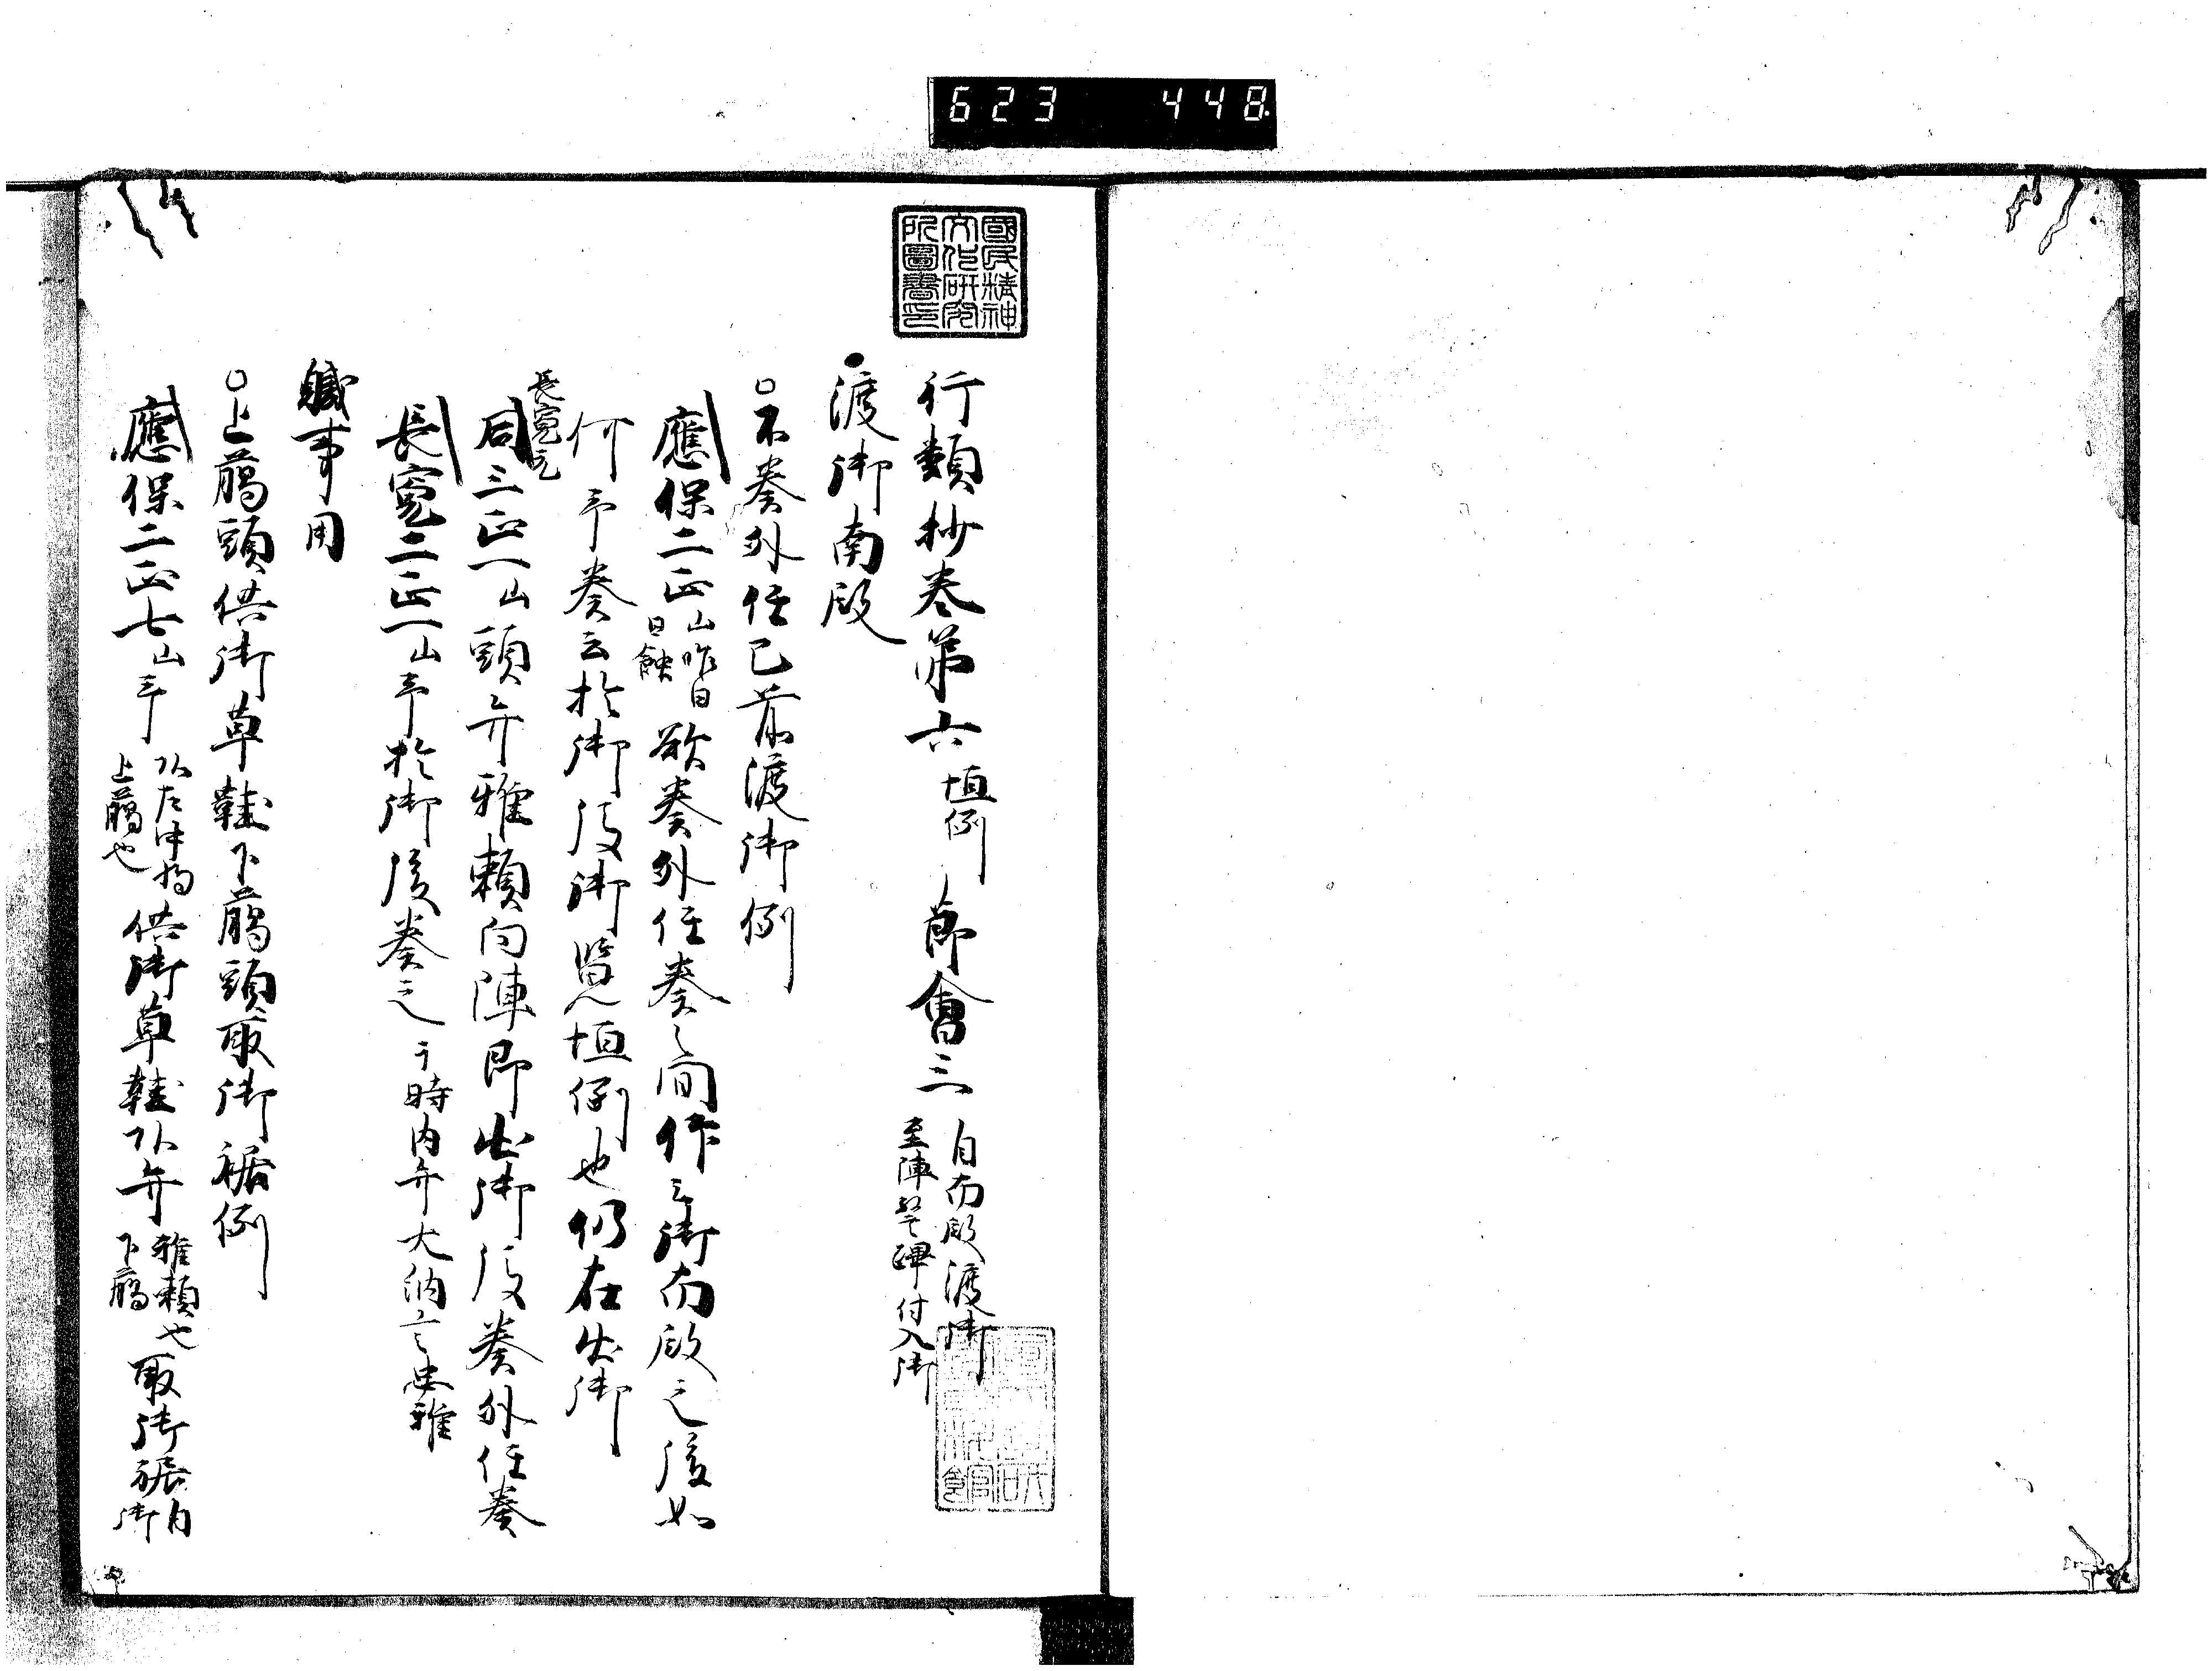 623 448
國民精神文化研究所圖書印
行類抄巻第六 恒例 節會三 自南殿渡御 至陣警蹕付入御
・渡御南殿
○不奏外任已前渡御例
應保二正一山 昨日日蝕 欲奏外任奏之間作云御南殿之後如
何予奏云於御後御覧恒例也仍在出御
長寛元
同三正一山頭弁雅頼向陣即出御後奏外任奏
長寛二正一山予於御後奏之于時内弁大納言忠雅
職事用
○上臈頭供御草鞋下臈頭取御裾例
應保二正七山予 上臈也 供御草鞋弁 雅頼也下臈 取御裾 自御